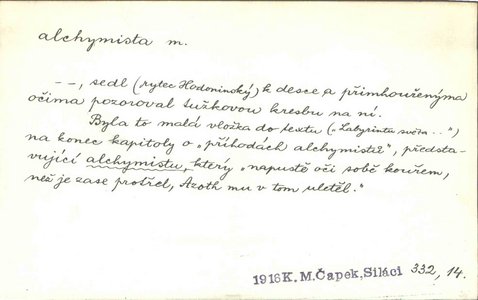 alchymista m.
– –, sedl (rytec Hodoninský) k desce a přimhouřenýma
očima pozoroval tužkovou kresbu na ní.
Byla to malá vložka do textu („Labyrintu světa . . “)
na konec kapitoly o „příhodách alchymistů“, předsta-
vující alchymistu, který „napustě oči sobě kouřem,
než je zase protřel, Azoth mu v tom uletěl.“
1916 K. M. Čapek, Siláci 332, 14.